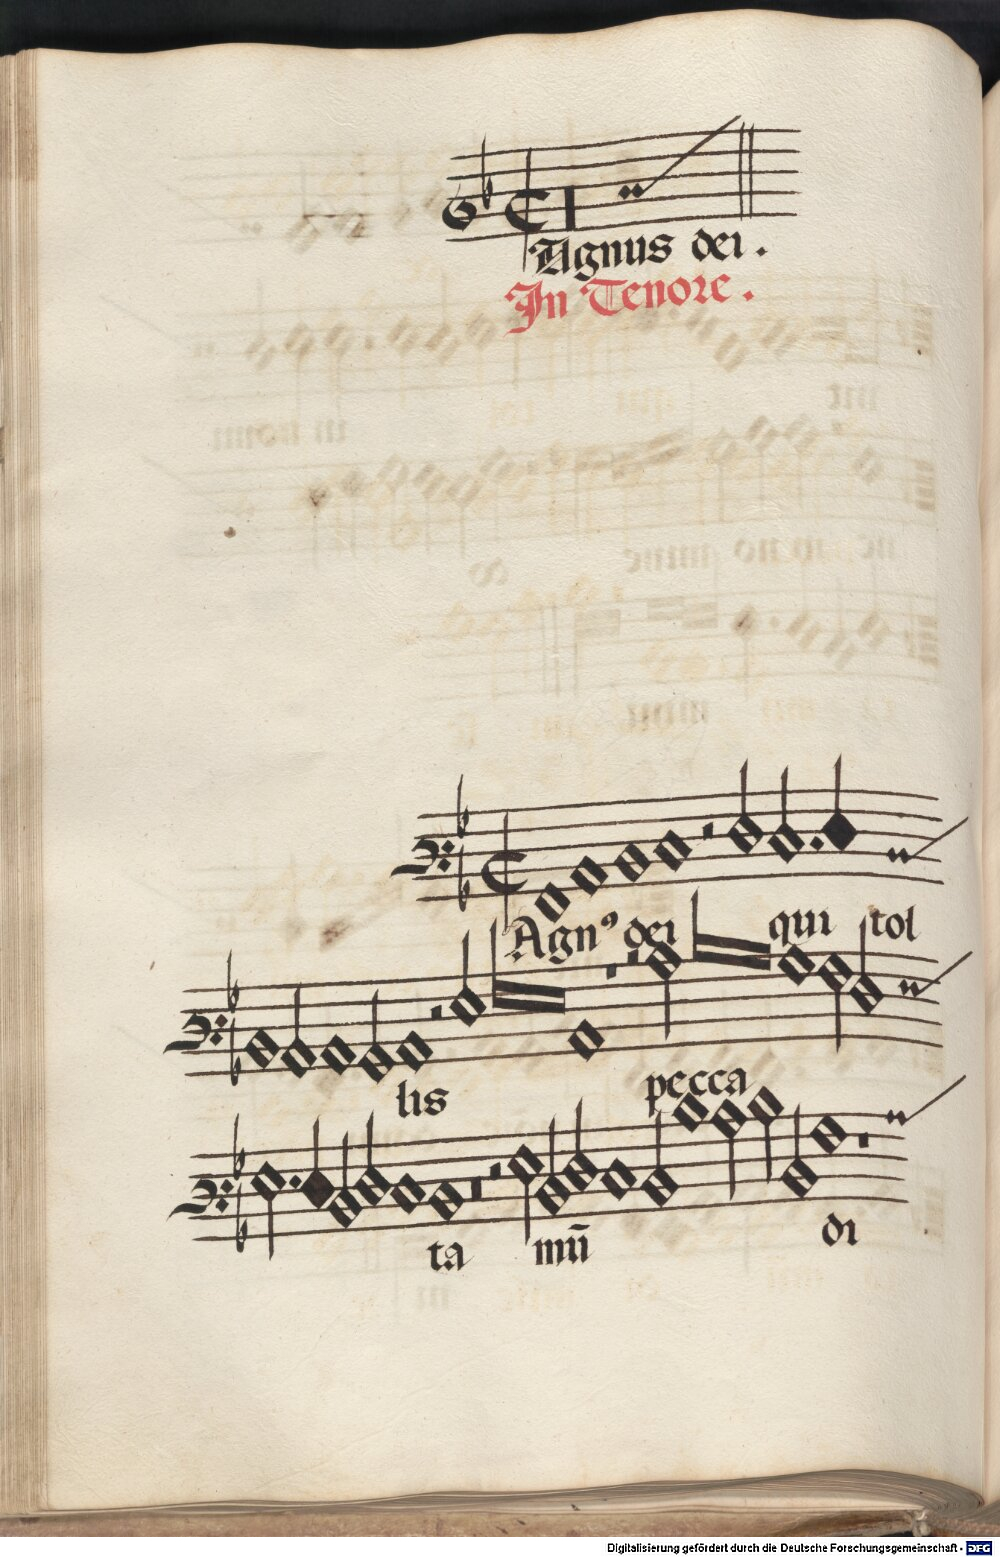 Agnus dei .
In Tenore .
Agnꝰ dei qui tol
lis pecca
ta mū di
Digitalisierung gefördert durch die Deutsche Forschungsgemeinschaft - DFG